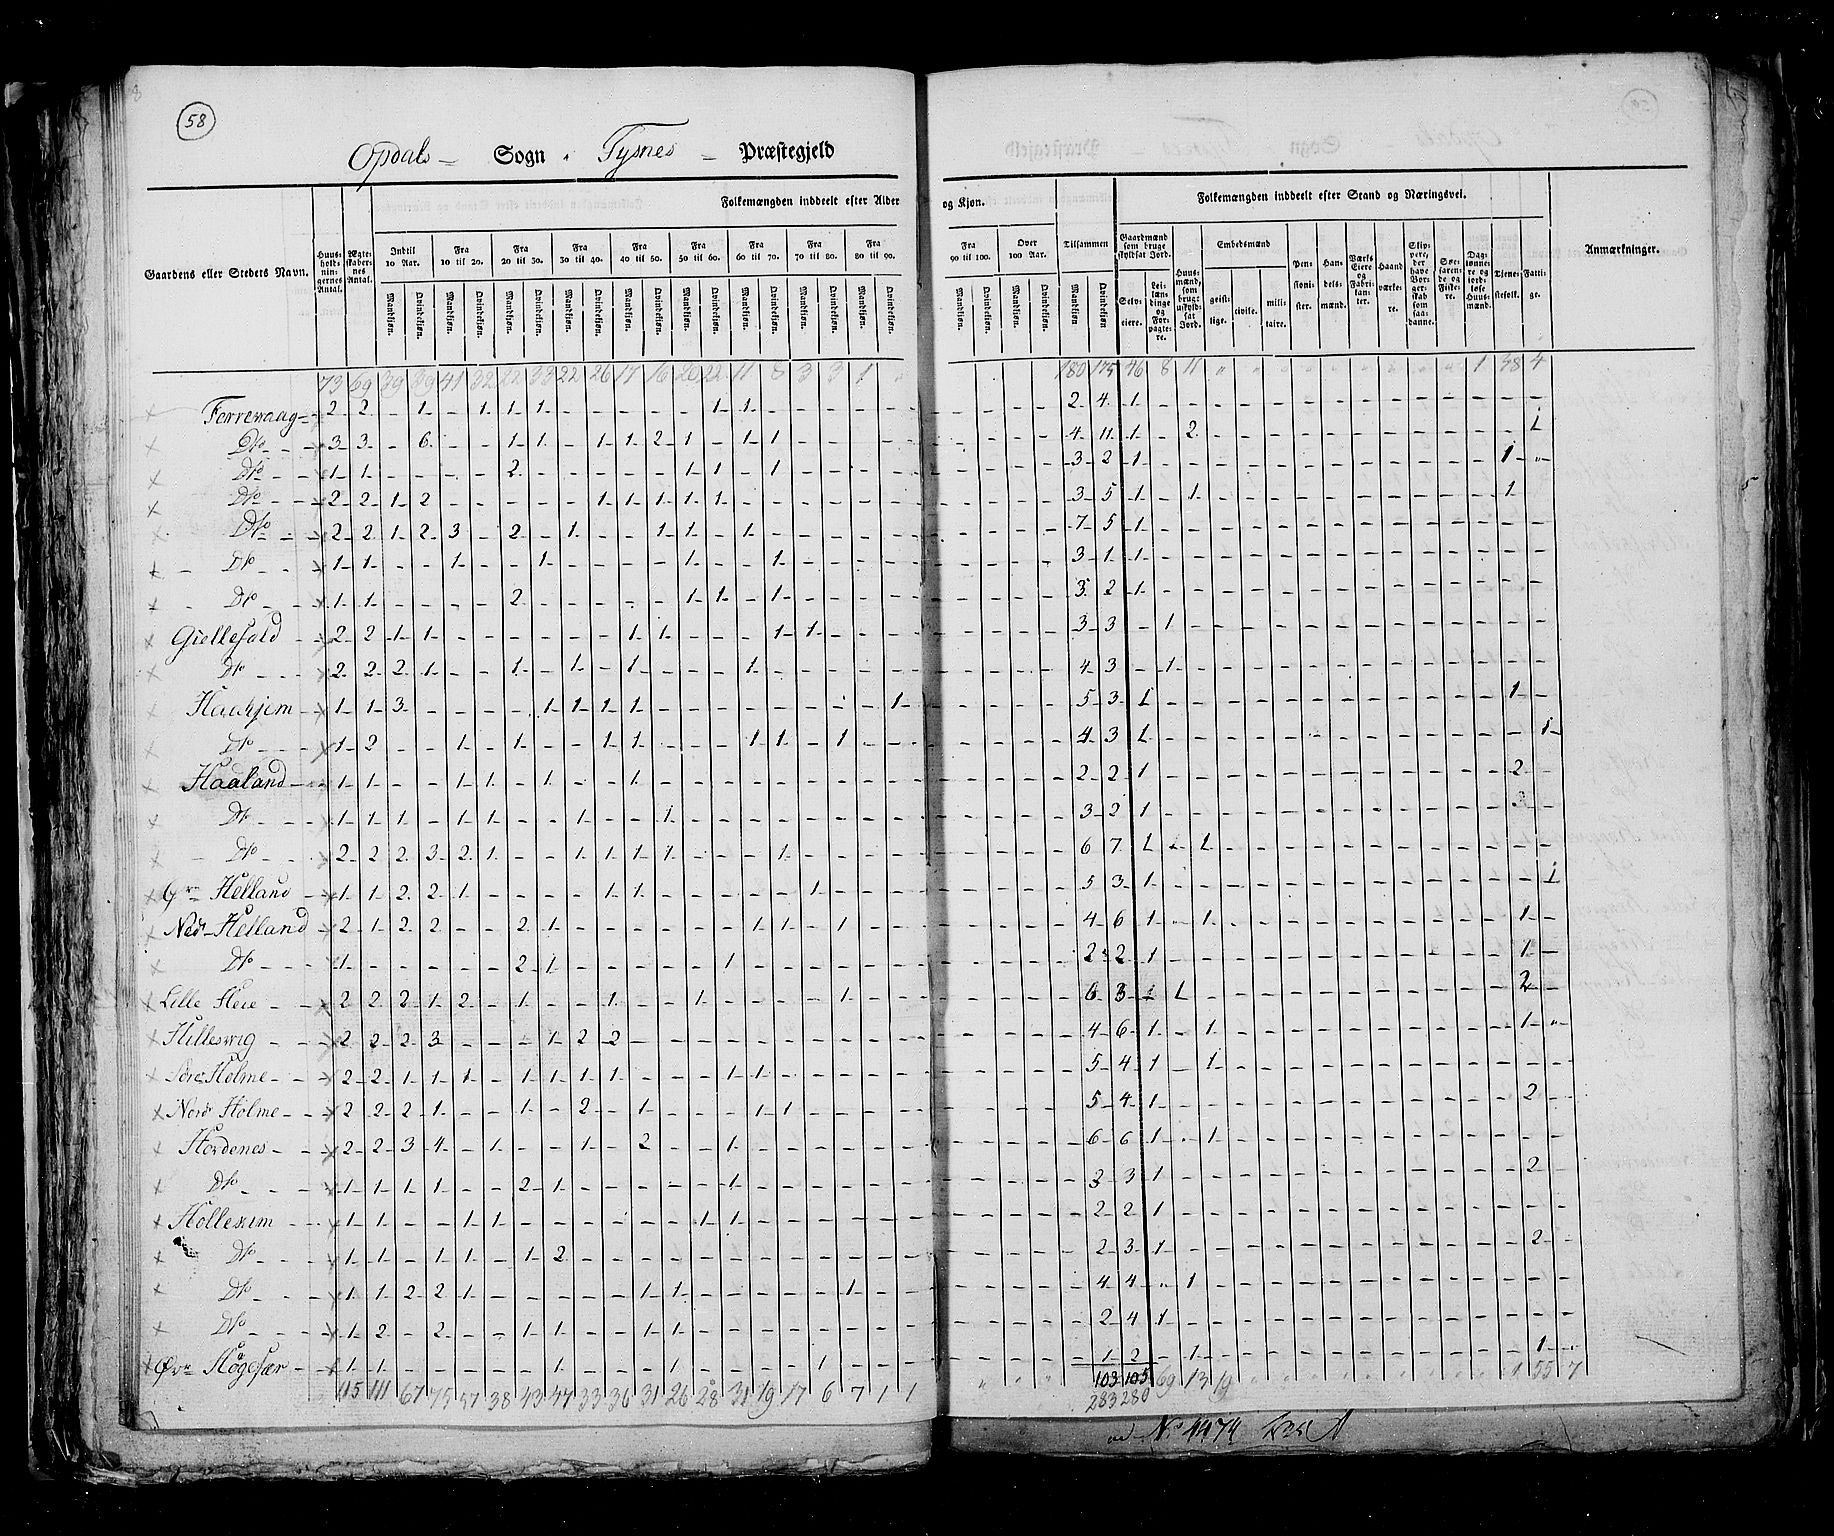 58
Opdals Sogn Tysnes Præstegjeld
Folkemængden inddeelt efter Alder og Kjøn.
Folkemængden inddeelt efter Stand og Næringsvei.
Gaardens eller Stedets Navn.
Huusholdningernes Antal.
Ægteskabernes Antal.
Indtil 10 Aar.
Fra 10 til 20.
Fra 20 til 30.
Fra 30 til 40.
Fra 40 til 50.
Fra 50 til 60.
Fra 60 til 70.
Fra 70 til 80.
Fra 80 til 90.
Fra 90 til 100.
Over 100 Aar.
Tilsammen
Mandkjøn. Qvindekjøn.
Gaardmænd som bruge skyldsat Jord.
Selveiere.
Leilændinge og Forpagtere.
Huusmænd, som bruge uskyldsat Jord.
Embedsmænd
geistlige. civile. militaire.
Pensionister.
Handelsmænd.
Værks Eiere og Fabrikanter.
Haandværkere.
Skippere, der have Borgerskab som saadanne.
Søefarende og Fiskere.
Daglønnere og jordløse Huusmænd.
Tjenestefolk.
Fattige.
Anmærkninger.
73 69 39 39 41 32 22 33 22 26 17 16 20 22 11 8 3 3 1 180 175 46 8 11 1 38 4
Do 3 3 6 1 1 1 1 2 1 1 1 4 11 1 2 1
Do 1 1 2 1 1 1 3 2 1 1
Do 2 2 1 2 1 1 1 1 1 3 5 1 1 1
Do 2 2 1 2 3 2 1 1 1 1 7 5 1
Do 1 1 1 1 1 1 3 1 1
Do 1 1 2 1 1 1 3 2 1
Giellefald 2 2 1 1 1 1 1 1 3 3 1
Do 2 2 2 1 1 1 1 1 4 3 1
1 1 3 1 1 1 1 1 5 3 1 1
Do 1 2 1 1 1 1 1 1 1 4 3 1 1
Haaland 1 1 1 1 1 1 2 2 1 2
Do 1 1 1 1 1 1 1 3 2 1
Do 2 2 2 3 2 1 1 1 1 1 1 6 7 1 1 1
Helland 1 1 2 2 1 1 1 1 5 3 1 1
Nedr Helland 2 1 2 2 2 1 1 1 1 4 6 1 1 1
Do 1 2 1 1 2 2 1 1
Lille Heie 2 2 2 1 2 1 1 1 1 6 3 1 1 2
Hilleswig 2 2 2 3 1 2 2 4 6 1 1 1
Holme 2 2 1 1 1 1 1 1 1 1 1 5 4 1 1
Nord Holme 2 2 2 1 1 2 1 1 1 5 4 1 2
Hordenes 2 2 3 4 1 1 2 1 6 6 1 1
Do 1 1 1 1 2 1 1 3 3 1 2
1 1 1 1 1 1 2 2 1
Do 1 1 1 1 1 2 2 3 1 2
Do 1 1 2 2 1 1 1 1 4 4 1
Do 1 2 2 1 1 1 1 2 4 1
1 1 1 1 1 1 2 1 1
103 105
115 111 67 75 57 38 43 47 33 36 31 26 28 31 19 17 6 7 1 1 283 280 69 13 19 1 55 7